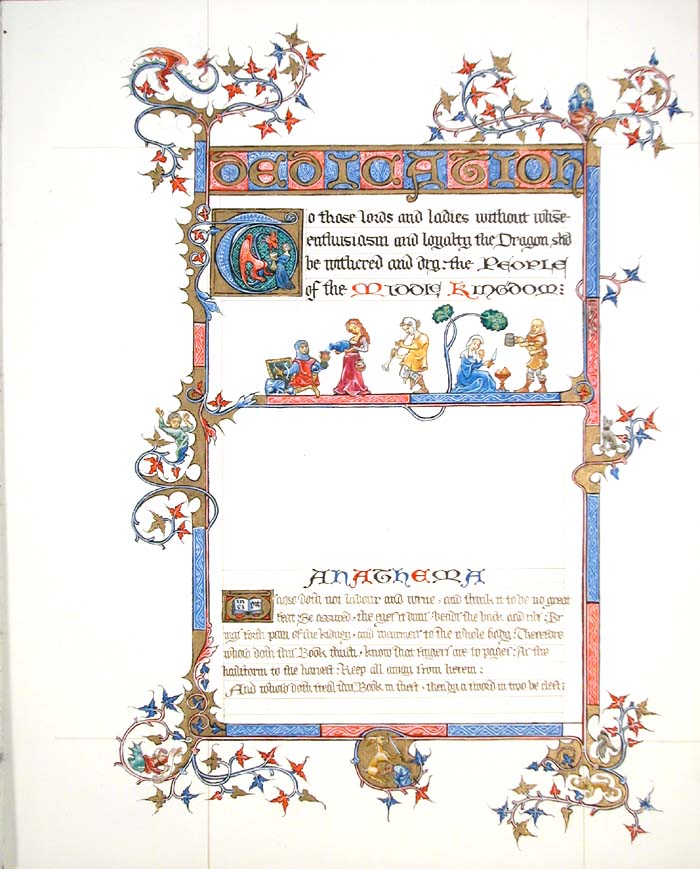 DEDICATION
To those lords and ladies without whose
enthusiasm and loyalty the Dragon
be withered and dry: the PEOPLE
of the MIDDLE KINGDOM:
ANATHEMA
doth not labour and write, and think it to be no great
feat: Be assured, the eyes it dims, bends the back and ribs: Br
ings forth pain of the kidney, and weariness to the whole body: Therefore
whoso doth this Book touch, know that fingers are to pages: As the
hailstorm to the harvest: Keep all away from herein:
And whoso doth steal this Book in theft, then by a sword in two be cleft: